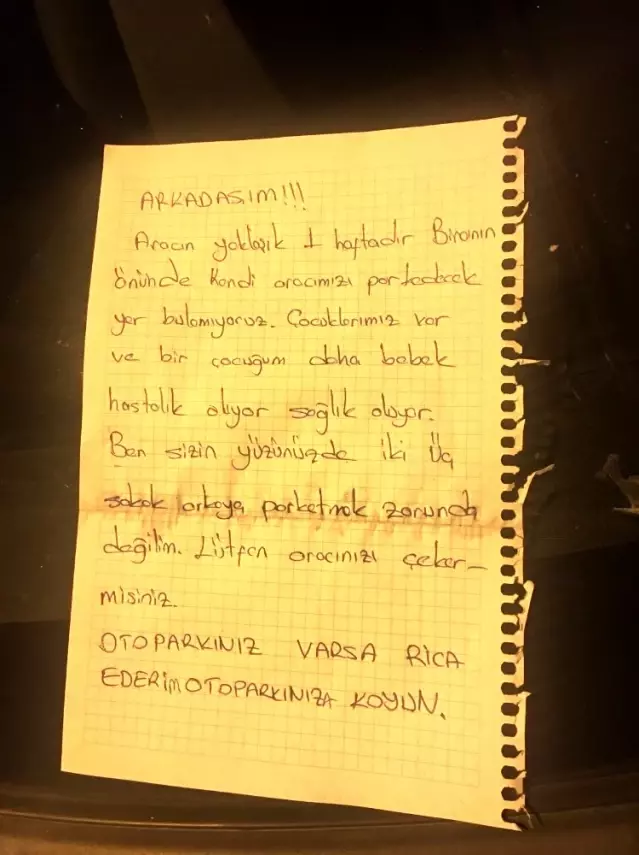 ARKADAŞIM!!!
Aracın yaklaşık 1 haftadır Binanın
önünde Kendi aracımızı parkedecek
yer bulamıyoruz. Çocuklarımız var
ve bir çocuğum daha bebek
hastalık oluyor sağlık oluyor.
Ben sizin yüzünüzde iki üç
sokak arkaya parketmek zorunda
değilim. Lütfen aracınızı çeker-
misiniz.
OTOPARKINIZ VARSA RİCA
EDERİM OTOPARKINIZA KOYUN.